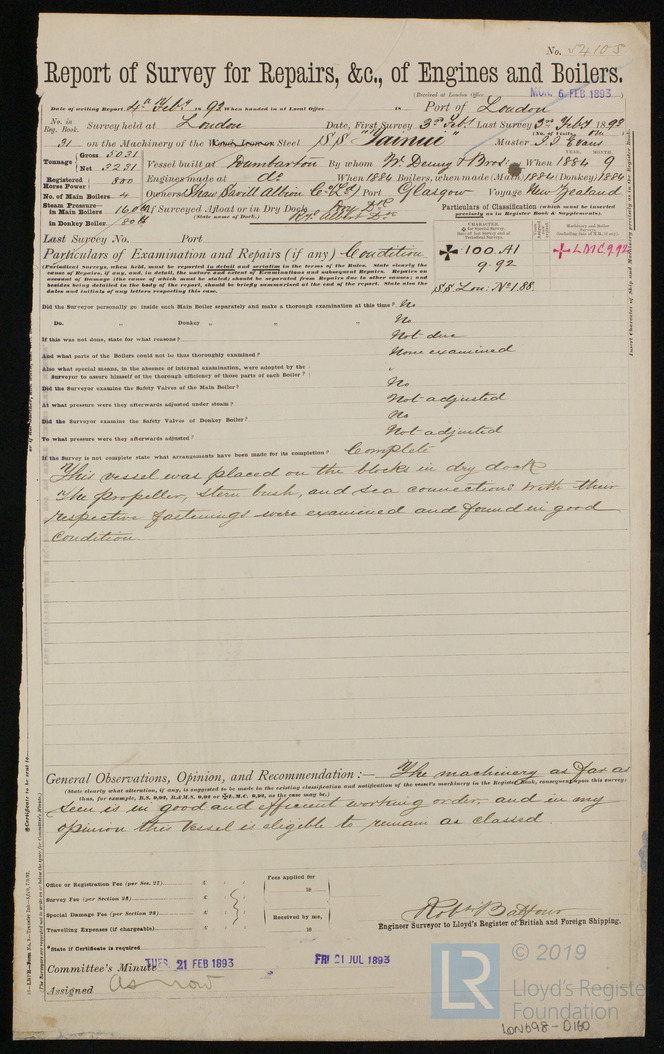 No. 54105
Report of Survey for Repairs, &c., of Engines and Boilers.
(Received at London Office MON. 6 FEB 1893)
Date of writing Report 4th Feby 1892 When handed in at Local Office 18 Port of London
No. in Reg. Book. Survey held at London Date, First Survey 3rd Feby Last Survey 3rd Feby 1892
(No. of Visits )
31 on the Machinery of the Wood, Iron or Steel S/S "Tainui" Master J. J. Evans
Tonnage Gross 5031 Net 3231 Vessel built at Dumbarton By whom W. Denny & Bros. When YEAR. 1884 MONTH. 9
Registered Horse Power 800 Engines made at do When 1884 Boilers, when made (Main) 1884 (Donkey) 1884
No. of Main Boilers 4 Owners Shaw Savill Albion Co. (Ld) Port Glasgow Voyage New Zealand
Steam Pressure— in Main Boilers 160 lb If Surveyed Afloat or in Dry Dock Dry Dk
(State name of Dock.) Rl Albert Dk
in Donkey Boiler 80 lb
Particulars of Classification (which must be inserted precisely as in Register Book & Supplements).
CHARACTER.
Machinery and Boiler Surveys
(including date of N.B., if any).
Last Survey No. Port
✠ 100.A1 ✠ L.M.C. 9.92
9.92
S.S. Lon: No 1 88
Particulars of Examination and Repairs (if any) Condition
(Periodical Surveys, when held, must be reported in detail and seriatim in the terms of the Rules. State clearly the
cause of Repairs, if any, and, in detail, the nature and extent of Examinations and subsequent Repairs. Repairs on
account of Damage (the cause of which must be stated) should be separated from Repairs due to other causes; and
besides being detailed in the body of the report, should be briefly summarised at the end of the report. State also the
dates and initials of any letters respecting this case.
Did the Surveyor personally go inside each Main Boiler separately and make a thorough examination at this time? No
Do. „ Donkey „ „ „ No
If this was not done, state for what reasons? Not due
And what parts of the Boilers could not be thoroughly examined? None examined
Also what special means, in the absence of internal examination, were adopted by the
Surveyor to assure himself of the thorough efficiency of those parts of each Boiler? "
Did the Surveyor examine the Safety Valves of the Main Boiler? No
At what pressure were they afterwards adjusted under steam? Not adjusted
Did the Surveyor examine the Safety Valves of Donkey Boiler? No
To what pressure were they afterwards adjusted? Not adjusted
If the Survey is not complete state what arrangements have been made for its completion? Complete
This vessel was placed on the blocks in dry dock
The propeller, stern bush, and sea connections with their
respective fastenings were examined and found in good
condition.
General Observations, Opinion, and Recommendation :— The machinery as far as
(State clearly what alteration, if any, is suggested to be made in the existing classification and notification of the vessel's machinery in the Register Book, consequent upon this survey:
thus, for example, B.S. 9,92, B.&M.S. 9,92 or ✠L.M.C. 9,92, as the case may be.)
seen is in good and efficient working order, and in my
opinion this vessel is eligible to remain as classed.
Office or Registration Fee (per Sec. 27) £ : :
Survey Fee (per Section 28) £ : :
Special Damage Fee (per Section 28) £ : :
Travelling Expenses (if chargeable) £ : :
Fees applied for
18
Received by me,
18
Robt Balfour
Engineer Surveyor to Lloyd's Register of British and Foreign Shipping.
*State if Certificate is required
Committee's Minute TUES. 21 FEB 1893 FRI 21 JUL 1893
Assigned as now
Insert Character of Ship and Machinery precisely as in the Register Book.
*Certificate to be sent to
© 2019
LR
Lloyd's Register
Foundation
LON698-0160